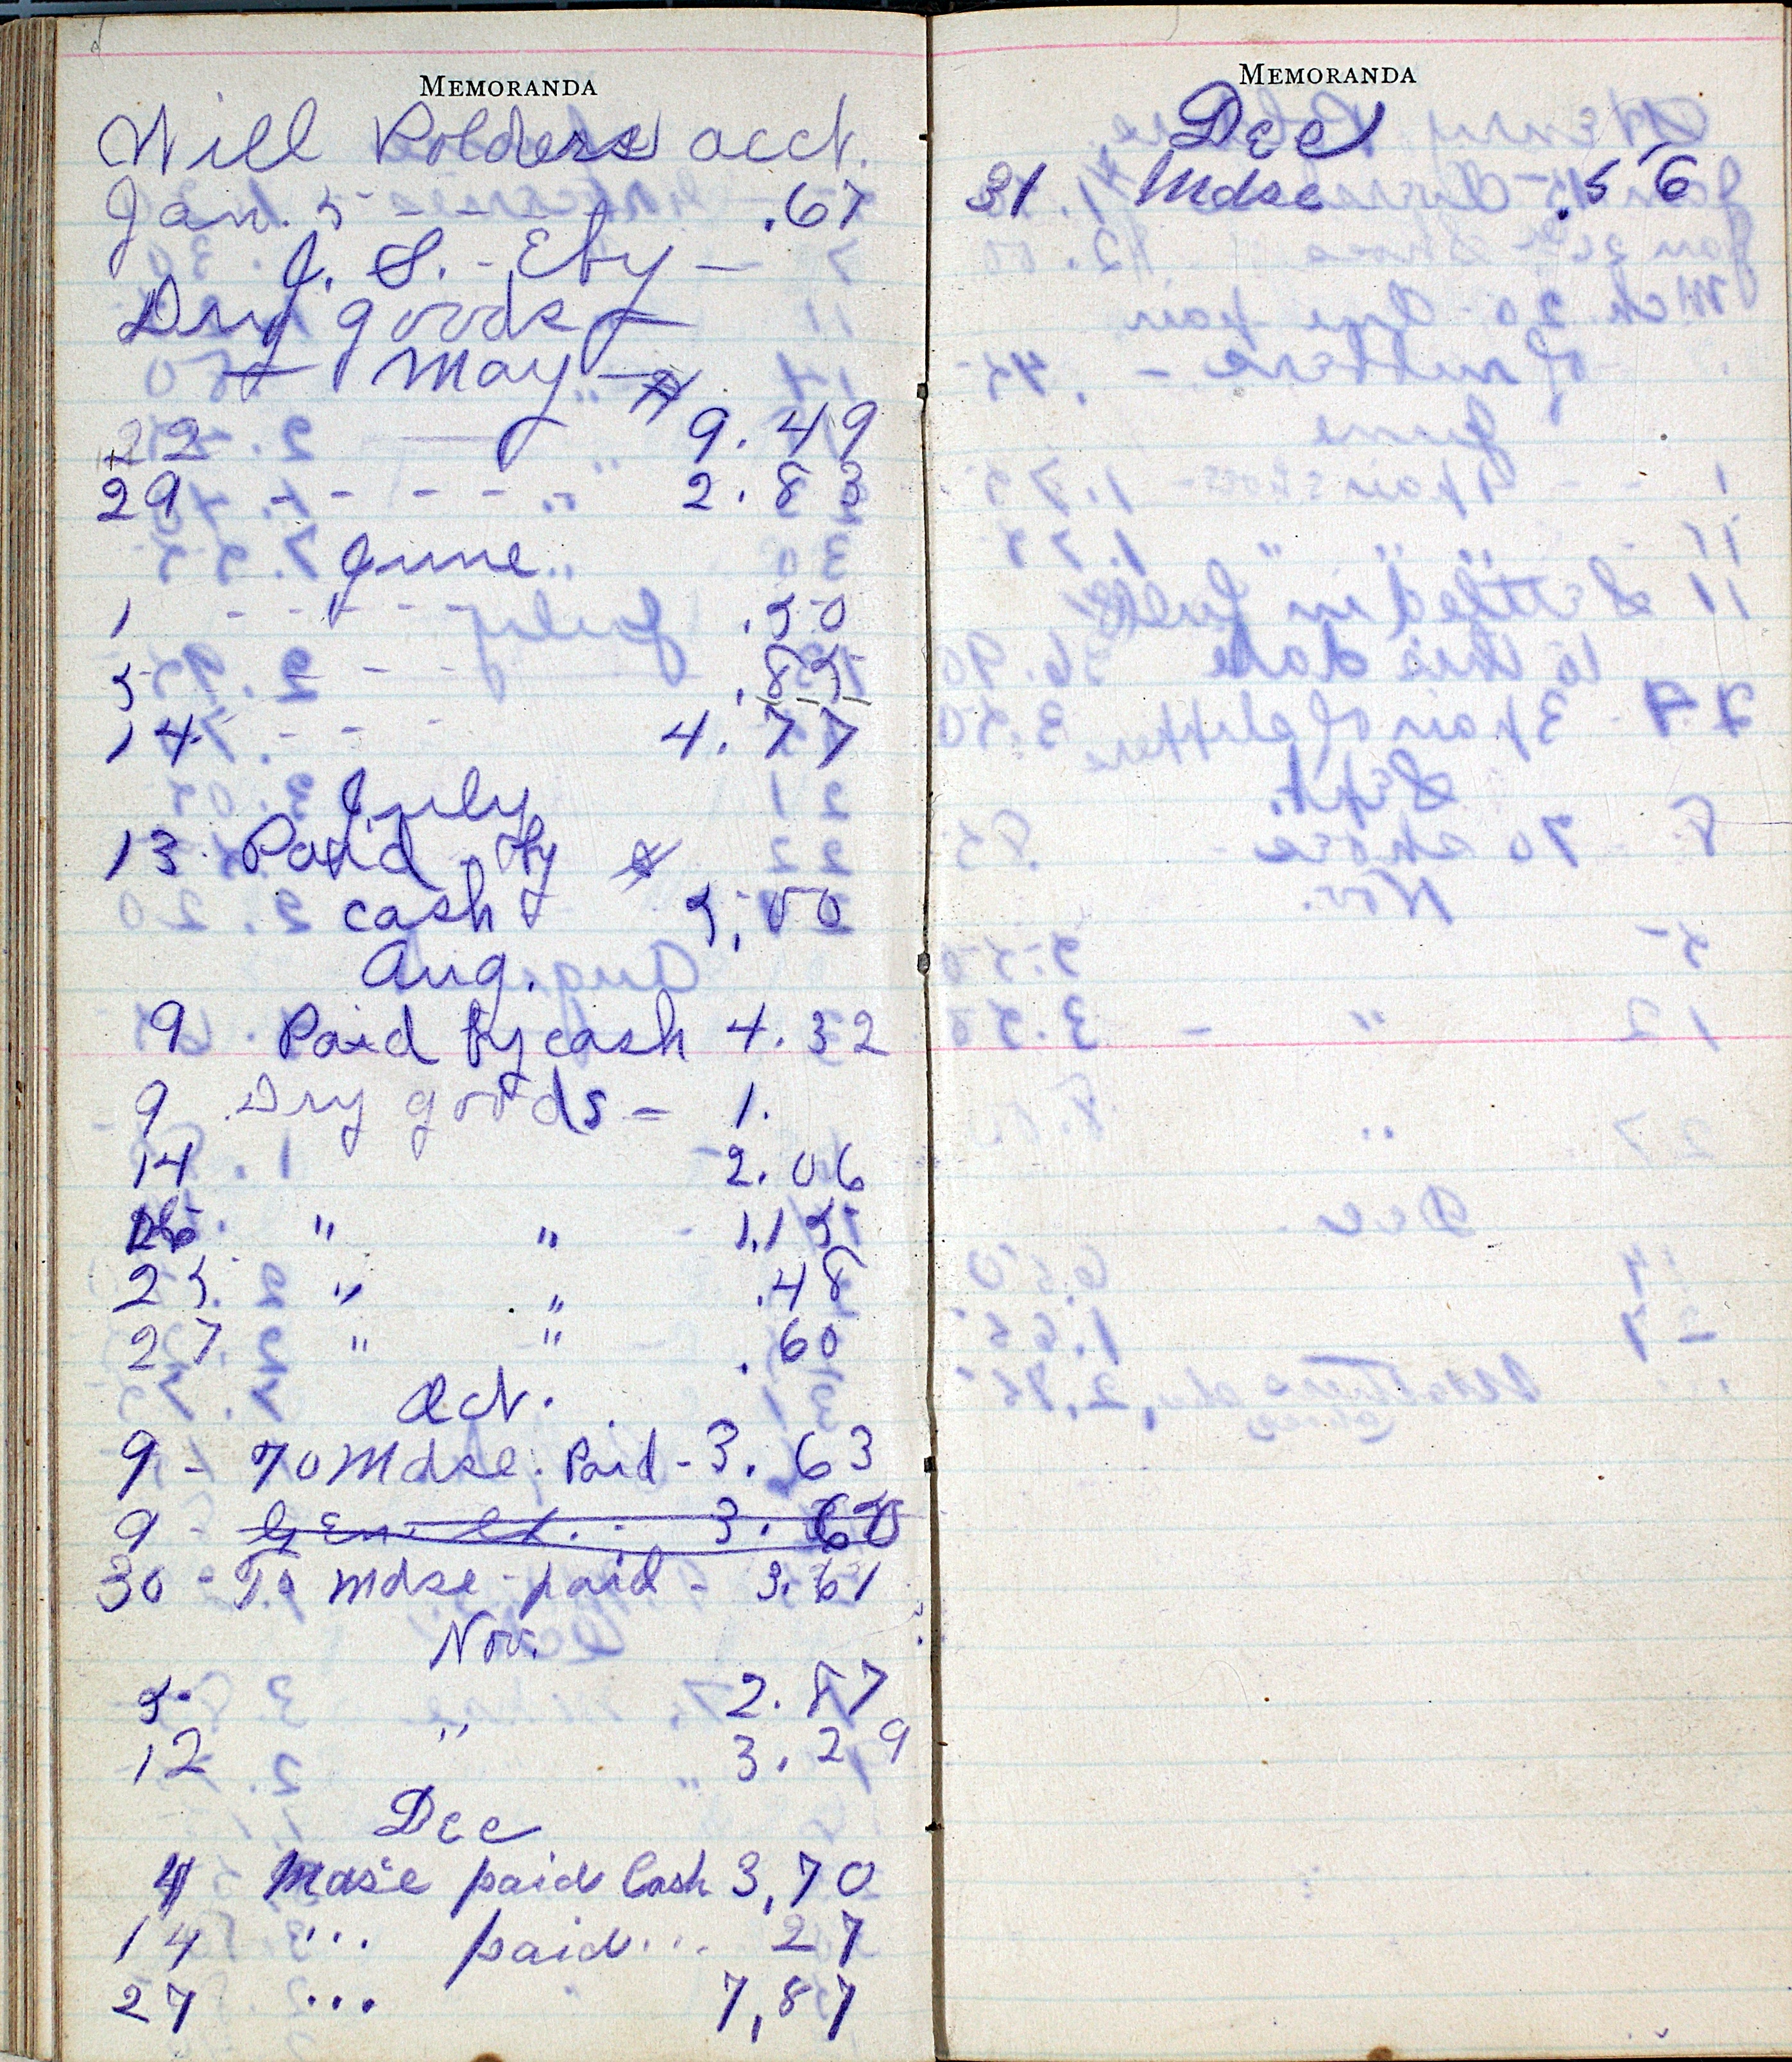 MEMORANDA
Will Polders acct.
Jan. 5 - - - - .67
J. S. - Eby -
Dry goods -
- May -
22 9.49
29 - - - - - 2.83
June
1 - - - - - .50
5 .85
14 - - 4.77
July
13 Paid by $
cash 5,00
Aug.
9 Paid by cash 4.32
9 Dry goods - 1.
14 2.06
" " 1.15
25. " " .48
27 " " .60
Oct.
9 - To Mdse. Paid - 3.63
9 -
30 - To mdse - paid - 3.61
Nov.
5 2.87
12 " 3.29
Dec
4 Mdse paid Cash 3,70
14 ... paid ... 27
27 ... 7,87
MEMORANDA
Dec
31 Mdse .56